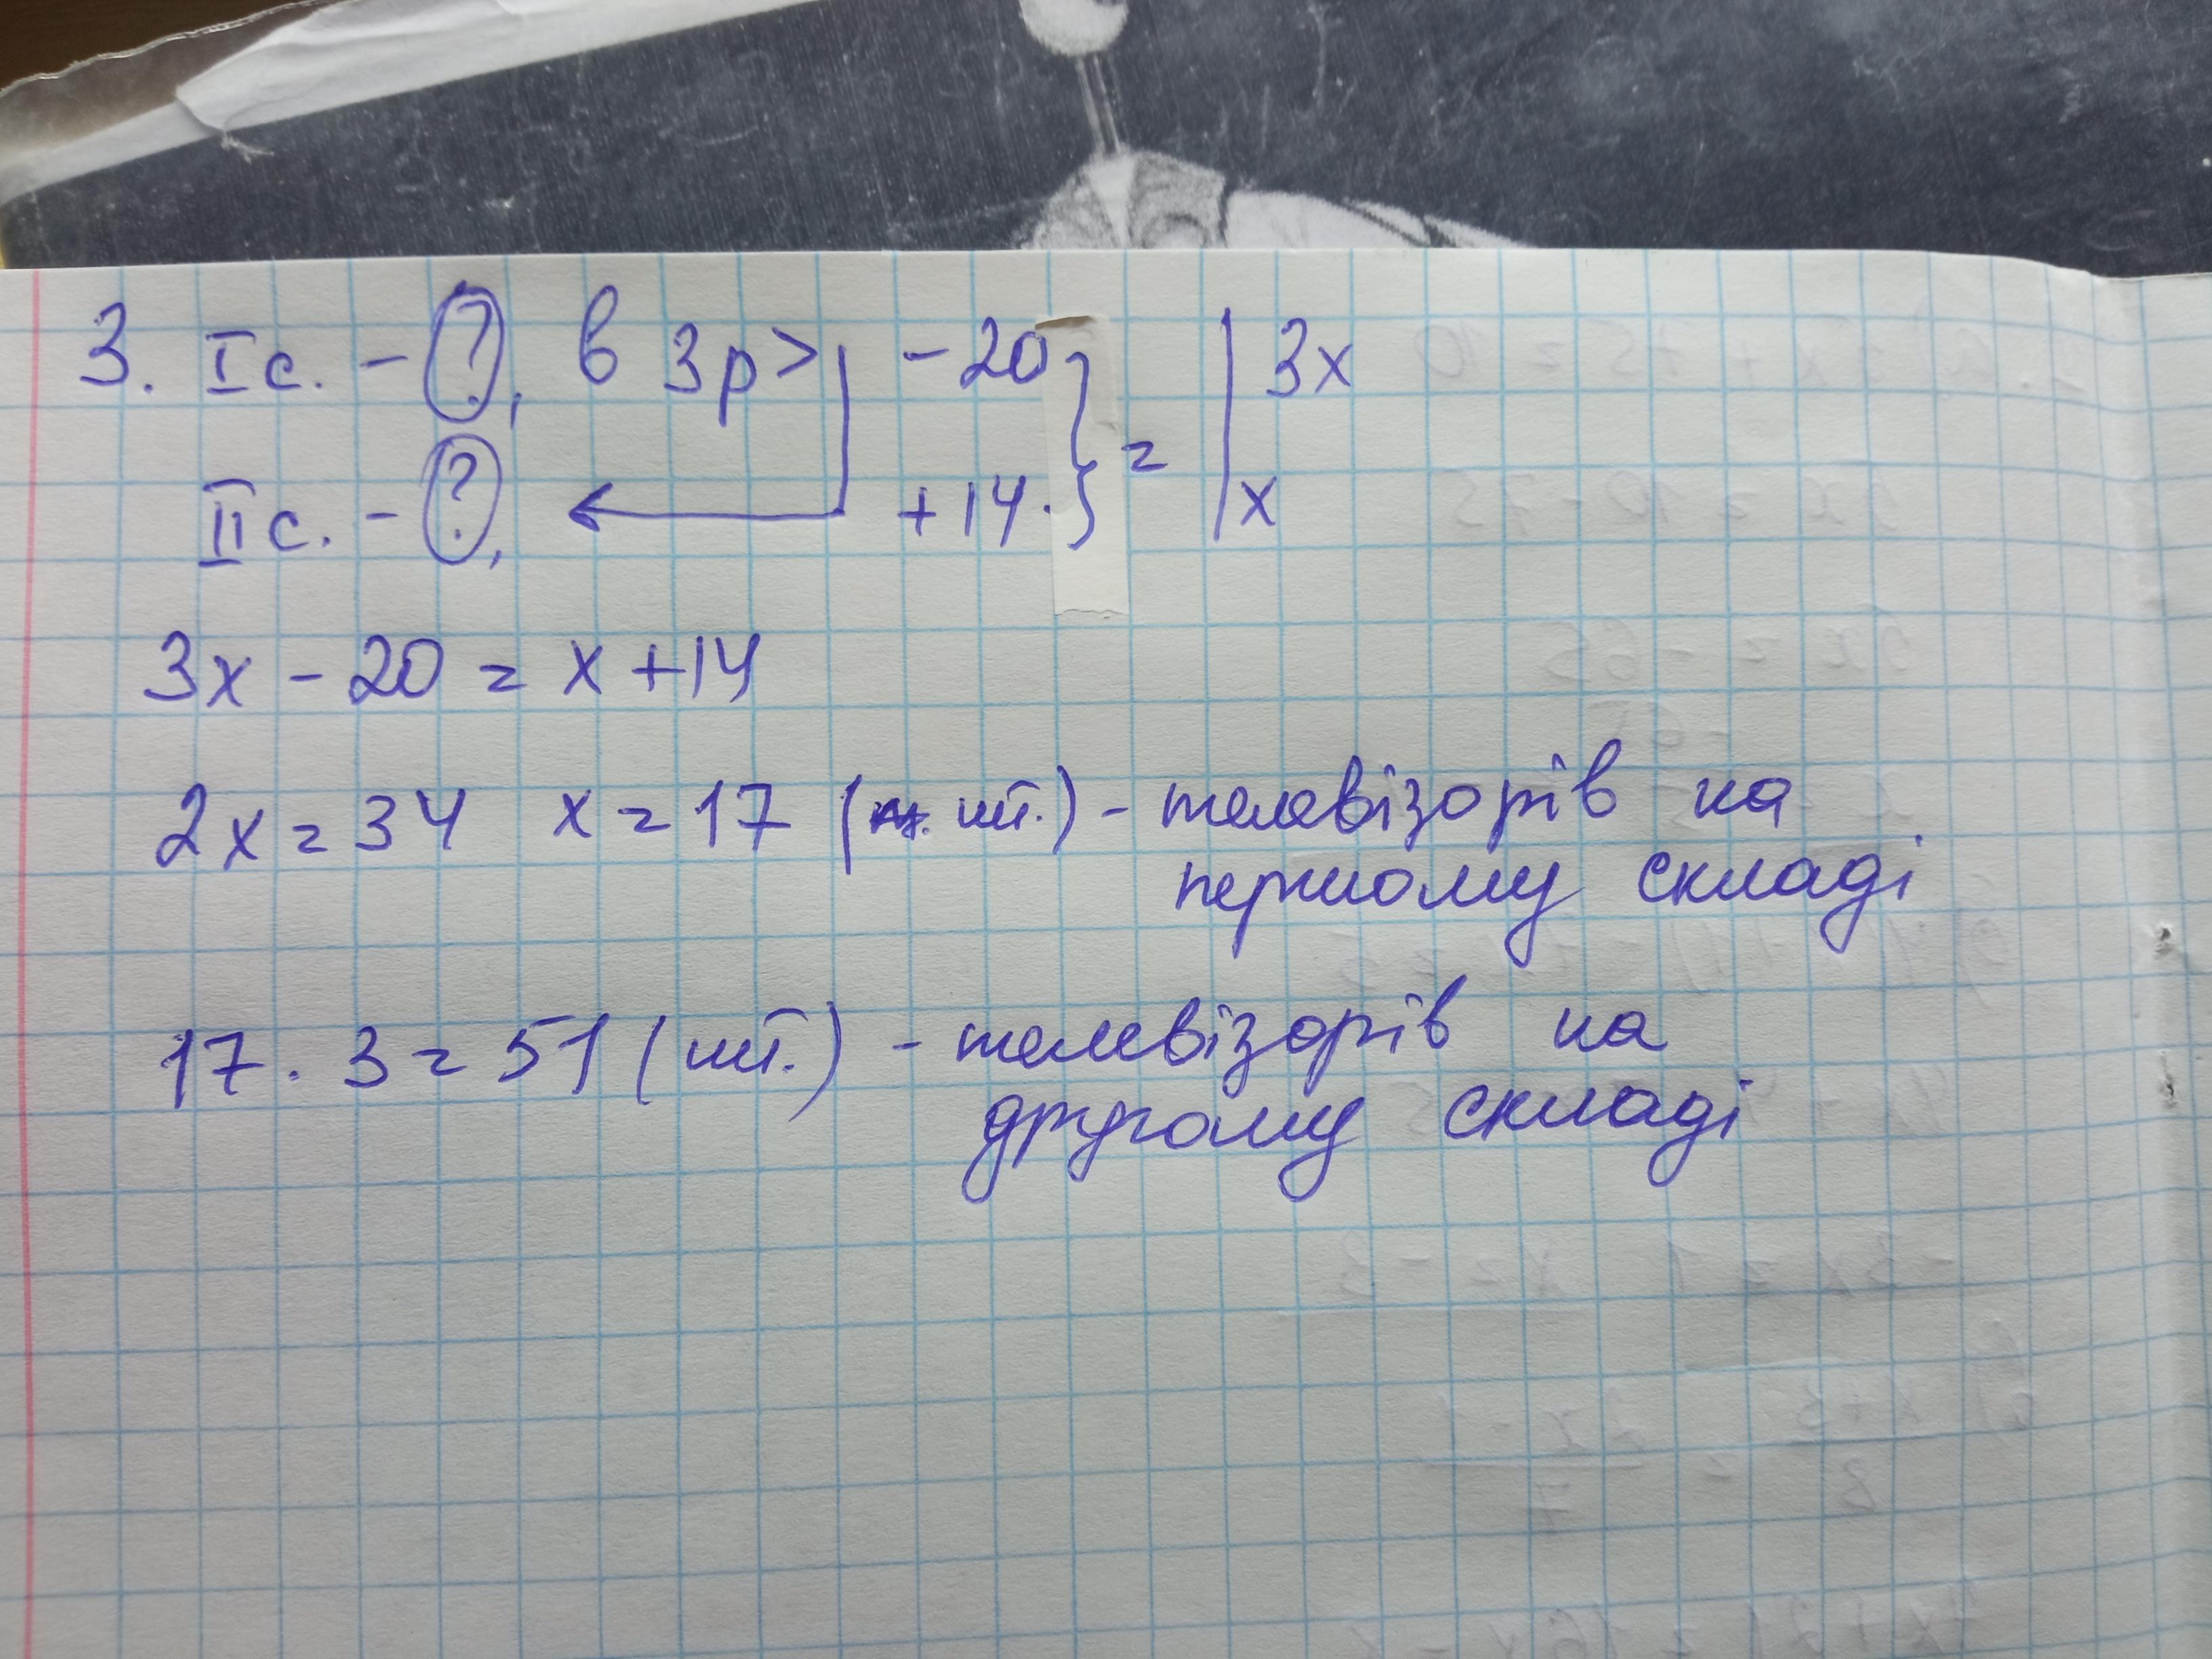 3. Iс. - ?, в 3р> -20 } = | 3х
IIс. - ?, ← +14. } | х
3х - 20 = х + 14
2х = 34 х = 17 (шт.) - телевізорів на
першому складі
17 · 3 = 51 (шт.) - телевізорів на
другому складі